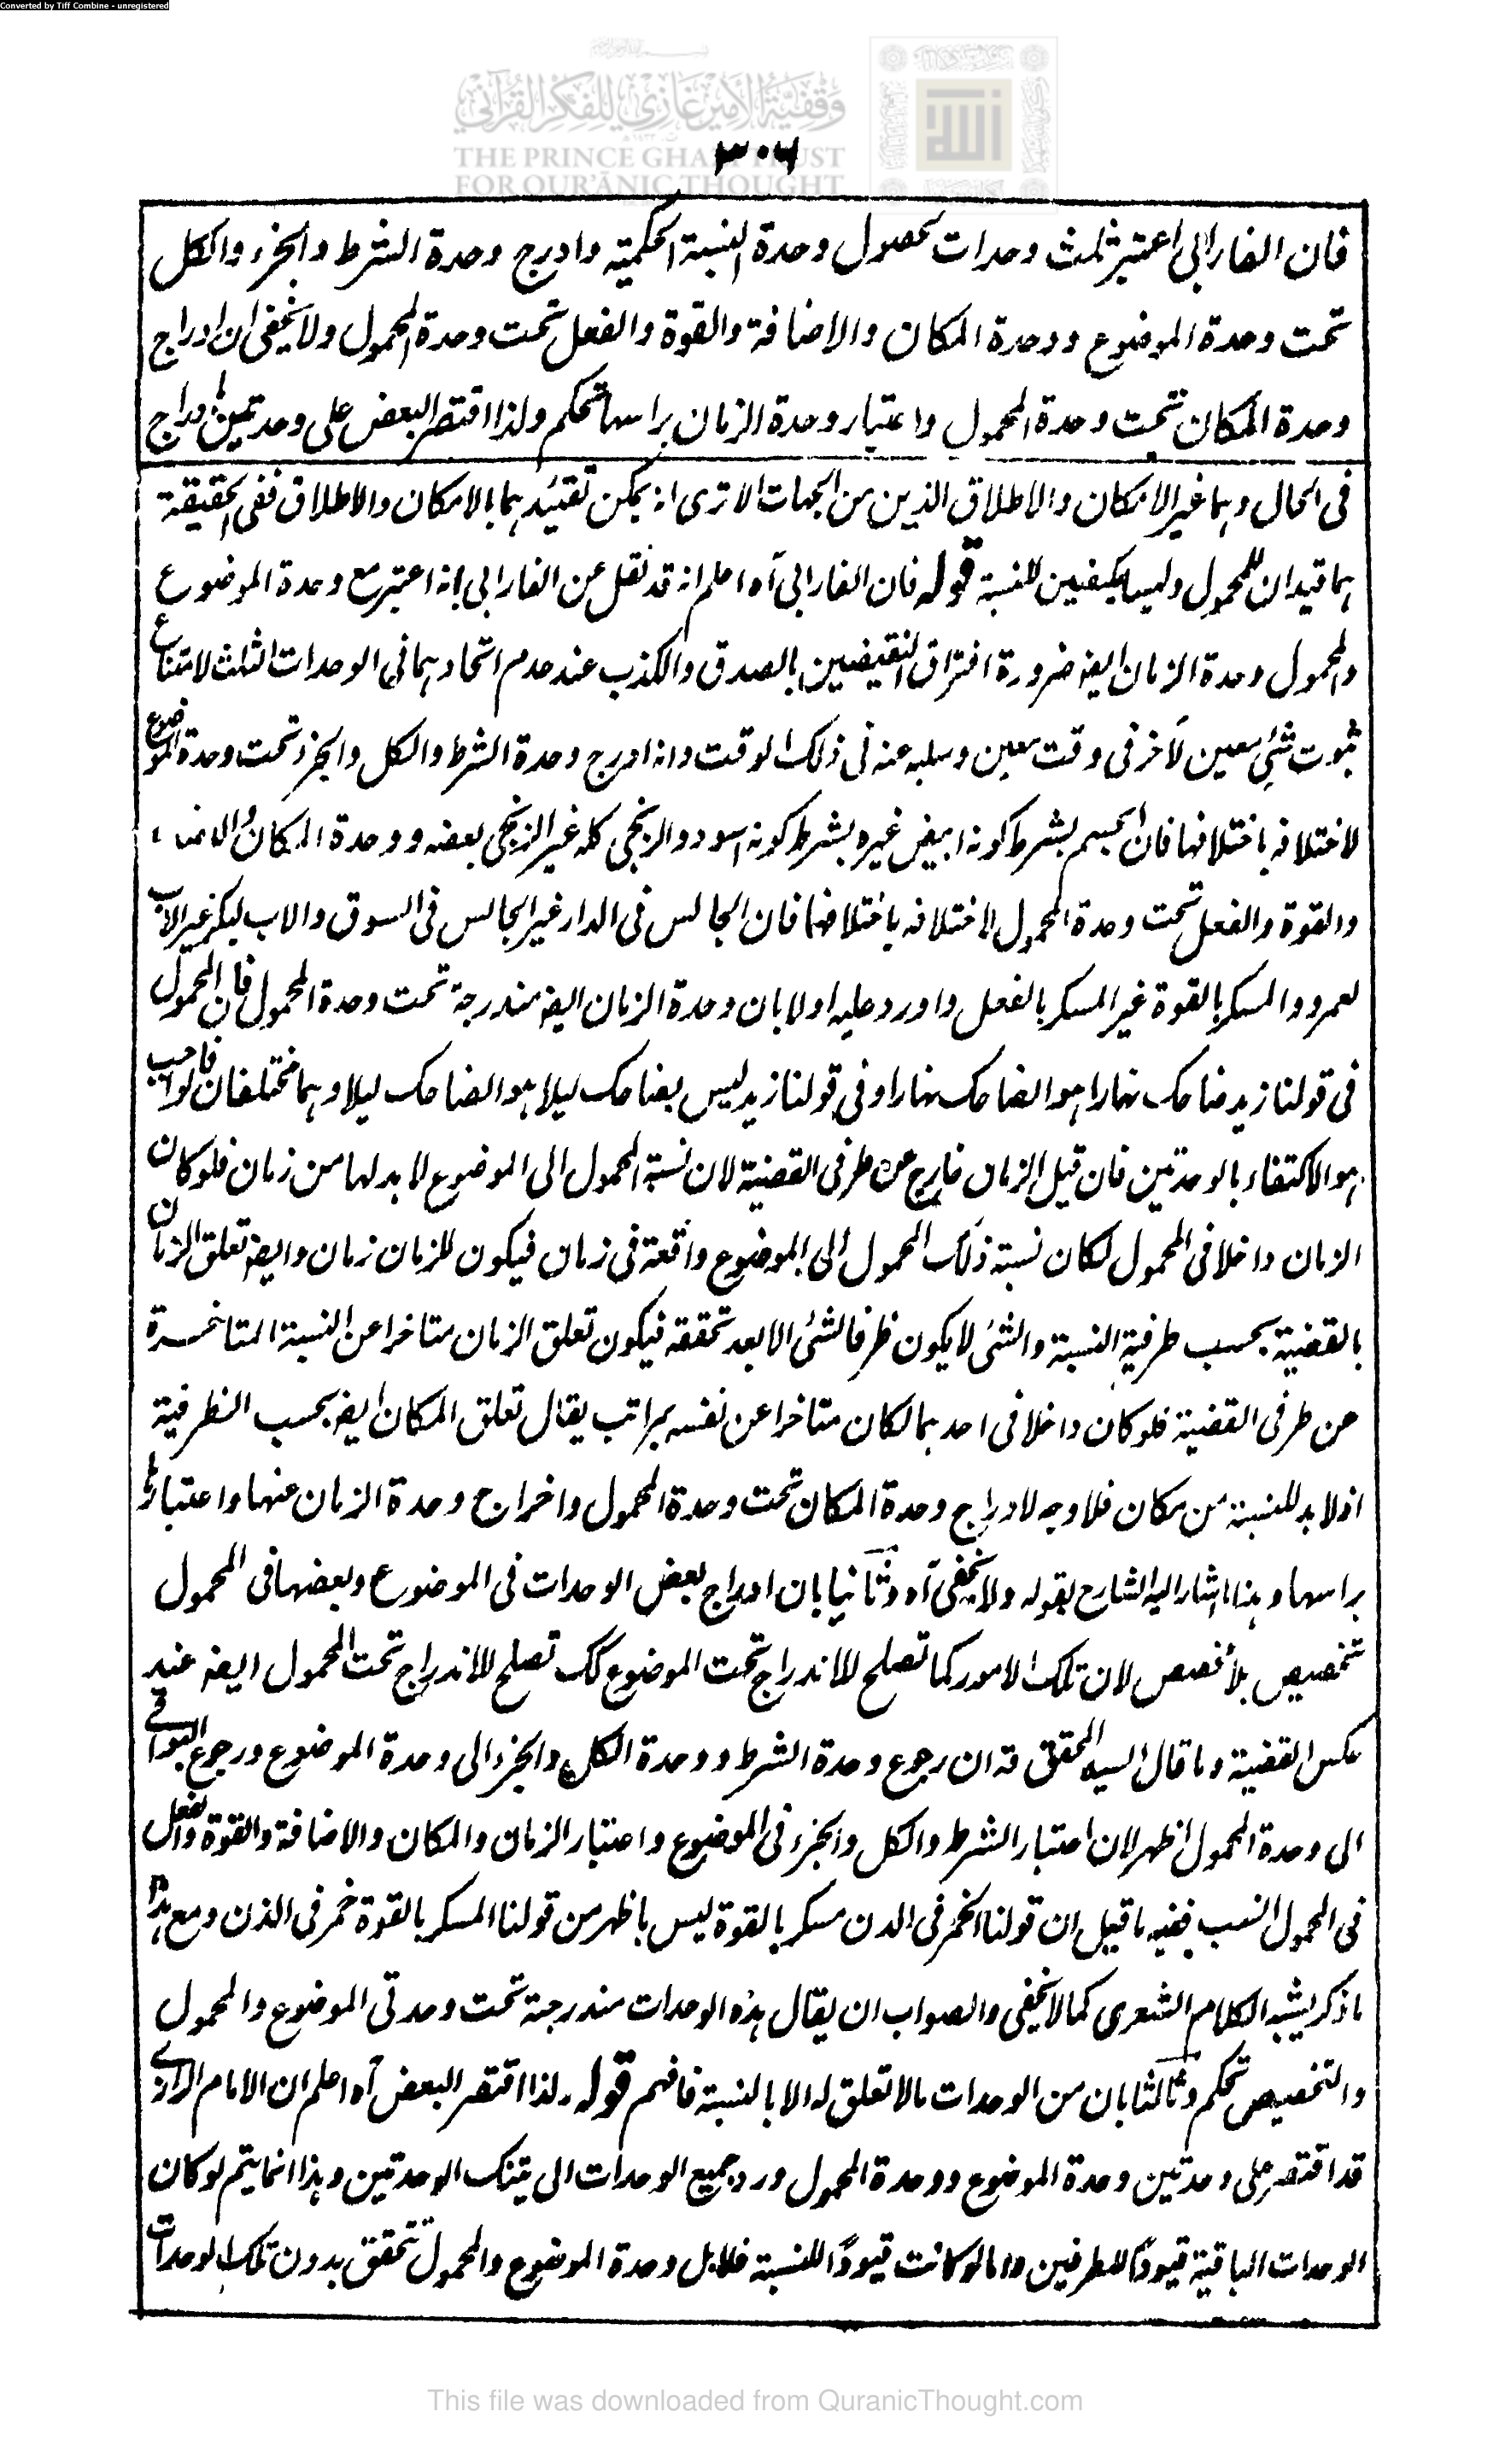 Converted by Tiff Combine - unregistered
وقفية الأمير غازي للفكر القرآني
THE PRINCE GHAZI TRUST
FOR QUR'ĀNIC THOUGHT
٣٠٦
فان الفارابى اعتبر ثلث وحدات بحصول وحدة النسبة الحكمية وادرج وحدة الشرط والجزء والكل
تحت وحدة الموضوع ووحدة المكان والاضافة والقوة والفعل تحت وحدة المحمول ولا يخفى ان ادراج
وحدة المكان تحت وحدة المحمول واعتبار وحدة الزمان براسها تحكم ولذا اقتصر البعض على وحدتين ادراج
فى الحال وهما غير الامكان والاطلاق الذين من الجهات الا ترى انه يمكن تقييدهما بالامكان والاطلاق ففى الحقيقة
هما قيدان للمحمول وليسا بكيفيين للنسبة قوله فان الفارابى آه اعلم انه قد نقل عن الفارابى انه اعتبر مع وحدة الموضوع
والمحمول وحدة الزمان ايضا ضرورة افتراق النقيضين بالصدق والكذب عند عدم اتحادهما فى الوحدات الثلث لامتناع
ثبوت شئ معين لآخر فى وقت معين وسلبه عنه فى ذلك الوقت وانه ادرج وحدة الشرط والكل والجزء تحت وحدة الموضوع
لاختلافه باختلافها فان الجسم بشرط كونه ابيض غيره بشرط كونه اسود والزنجى كله غير الزنجى بعضه ووحدة المكان والاضافة
والقوة والفعل تحت وحدة المحمول لاختلافه باختلافها فان الجالس فى الدار غير الجالس فى السوق والاب لبكر غير الاب
لعمرو والمسكر بالقوة غير المسكر بالفعل واورد عليه اولا بان وحدة الزمان ايضا مندرجة تحت وحدة المحمول فان المحمول
فى قولنا زيد ضاحك نهارا هو الضاحك نهارا وفى قولنا زيد ليس بضاحك ليلا هو الضاحك ليلا وهما مختلفان فالواجب
هو الاكتفاء بالوحدتين فان قيل الزمان خارج عن طرفى القضية لان نسبة المحمول الى الموضوع لا بد لها من زمان فلو كان
الزمان داخلا فى المحمول لكان نسبة ذلك المحمول الى الموضوع واقعة فى زمان فيكون للزمان زمان وايضا تعلق الزمان
بالقضية بحسب ظرفية النسبة والشئ لا يكون ظرفا لشئ الا بعد تحققه فيكون تعلق الزمان متاخرا عن النسبة المتاخرة
عن طرفى القضية فلو كان داخلا فى احدهما لكان متاخرا عن نفسه بمراتب يقال تعلق المكان ايضا بحسب الظرفية
اذ لا بد للنسبة من مكان فلا وجه لادراج وحدة المكان تحت وحدة المحمول واخراج وحدة الزمان عنها واعتبارها
براسها وهذا ما اشار اليه الشارح بقوله ولا يخفى آه وثانيا بان ادراج بعض الوحدات فى الموضوع وبعضها فى المحمول
تخصيص بلا مخصص لان تلك الامور كما تصلح للاندراج تحت الموضوع كك تصلح للاندراج تحت المحمول ايضا عند
عكس القضية وما قال السيد المحقق قه ان رجوع وحدة الشرط ووحدة الكل والجزء الى وحدة الموضوع ورجوع البواقى
الى وحدة المحمول اظهر لان اعتبار الشرط والكل والجزء فى الموضوع واعتبار الزمان والمكان والاضافة والقوة والفعل
فى المحمول انسب ففيه ما قيل ان قولنا الخمر فى الدن مسكر بالقوة ليس باظهر من قولنا المسكر بالقوة خمر فى الدن ومع هذا
ما ذكر يشبه الكلام الشعرى كما لا يخفى والصواب ان يقال هذه الوحدات مندرجة تحت وحدتى الموضوع والمحمول
والتخصيص تحكم وثالثا بان من الوحدات ما لا تعلق له الا بالنسبة فافهم قوله ولذا اقتصر البعض آه اعلم ان الامام الرازى
قد اقتصر على وحدتين وحدة الموضوع ووحدة المحمول ورد جميع الوحدات الى تينك الوحدتين وهذا انما يتم لو كان
الوحدات الباقية قيودًا للطرفين واما لو كانت قيودًا للنسبة فلا بل وحدة الموضوع والمحمول تتحقق بدون تلك الوحدات
This file was downloaded from QuranicThought.com